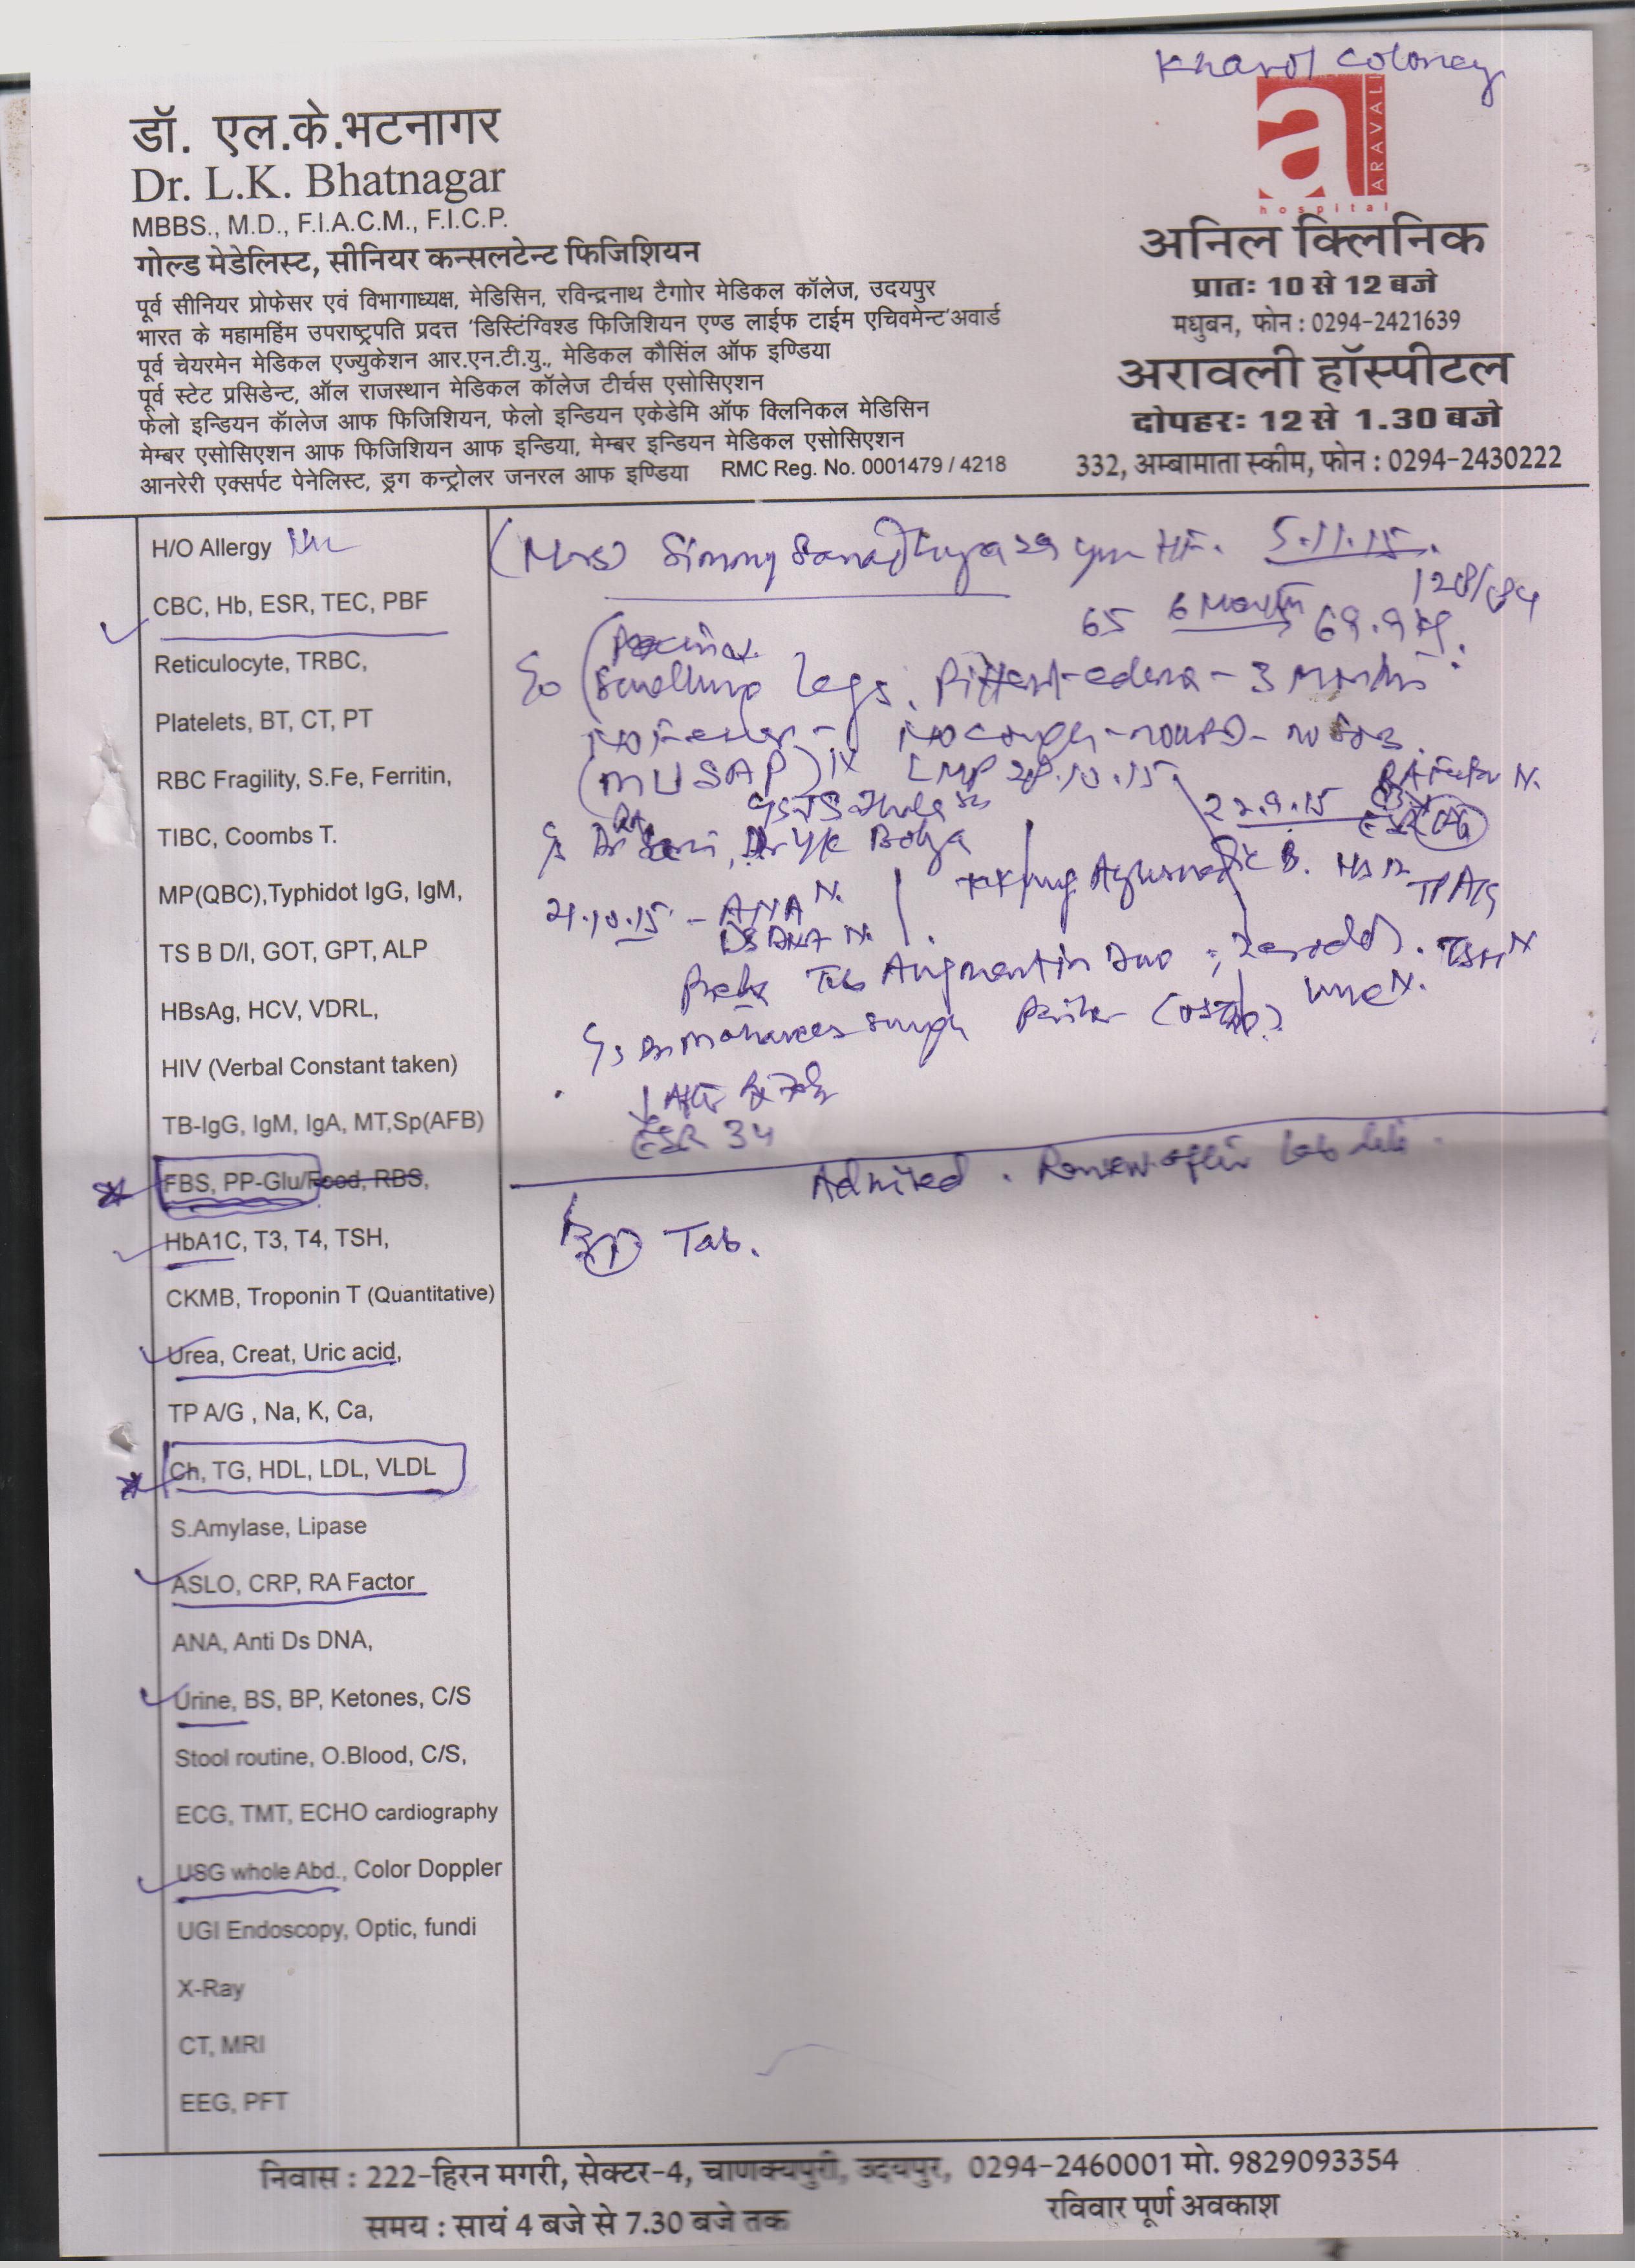 Kharol Coloney
डॉ. एल.के.भटनागर
Dr. L.K. Bhatnagar
MBBS., M.D., F.I.A.C.M., F.I.C.P.
गोल्ड मेडेलिस्ट, सीनियर कन्सलटेन्ट फिजिशियन
पूर्व सीनियर प्रोफेसर एवं विभागाध्यक्ष, मेडिसिन, रविन्द्रनाथ टैगाोर मेडिकल कॉलेज, उदयपुर
भारत के महामहिंम उपराष्ट्रपति प्रदत्त 'डिस्टिंग्विश्ड फिजिशियन एण्ड लाईफ टाईम एचिवमेन्ट'अवार्ड
पूर्व चेयरमेन मेडिकल एज्युकेशन आर.एन.टी.यु., मेडिकल कौसिंल ऑफ इण्डिया
पूर्व स्टेट प्रसिडेन्ट, ऑल राजस्थान मेडिकल कॉलेज टीर्चस एसोसिएशन
फेलो इन्डियन कॅालेज आफ फिजिशियन, फेलो इन्डियन एकेडेमि ऑफ क्लिनिकल मेडिसिन
मेम्बर एसोसिएशन आफ फिजिशियन आफ इन्डिया, मेम्बर इन्डियन मेडिकल एसोसिएशन
आनरेरी एक्सर्पट पेनेलिस्ट, ड्रग कन्ट्रोलर जनरल आफ इण्डिया RMC Reg. No. 0001479 / 4218
a ARAVALI
hospital
अनिल क्लिनिक
प्रातः 10 से 12 बजे
मधुबन, फोन : 0294-2421639
अरावली हॉस्पीटल
दोपहरः 12 से 1.30 बजे
332, अम्बामाता स्कीम, फोन : 0294-2430222
H/O Allergy
CBC, Hb, ESR, TEC, PBF
Reticulocyte, TRBC,
Platelets, BT, CT, PT
RBC Fragility, S.Fe, Ferritin,
TIBC, Coombs T.
MP(QBC),Typhidot IgG, IgM,
TS B D/I, GOT, GPT, ALP
HBsAg, HCV, VDRL,
HIV (Verbal Constant taken)
TB-IgG, IgM, IgA, MT,Sp(AFB)
FBS, PP-Glu/Food, RBS,
HbA1C, T3, T4, TSH,
CKMB, Troponin T (Quantitative)
Urea, Creat, Uric acid,
TP A/G , Na, K, Ca,
Ch, TG, HDL, LDL, VLDL
S.Amylase, Lipase
ASLO, CRP, RA Factor
ANA, Anti Ds DNA,
Urine, BS, BP, Ketones, C/S
Stool routine, O.Blood, C/S,
ECG, TMT, ECHO cardiography
USG whole Abd., Color Doppler
UGI Endoscopy, Optic, fundi
X-Ray
CT, MRI
EEG, PFT
(Mrs) Simmy Sanadhya 29 5.11.15.
128/84
65 6 Month 69.9 kg.
Swelling Legs. edema - 3 Months
No Fever - No cough
LMP 28.10.15
22.9.15 RA Factor N.
ESR
Taking Ayurvedic
21.10.15 - ANA N.
DS DNA N.
TP A/G
Tab Augmentin Duo TSH N
Urine N.
After
ESR 34
Admited . Review after lab
Tab.
निवास : 222-हिरन मगरी, सेक्टर-4, चाणक्यपुरी, उदयपुर, 0294-2460001 मो. 9829093354
समय : सायं 4 बजे से 7.30 बजे तक रविवार पूर्ण अवकाश